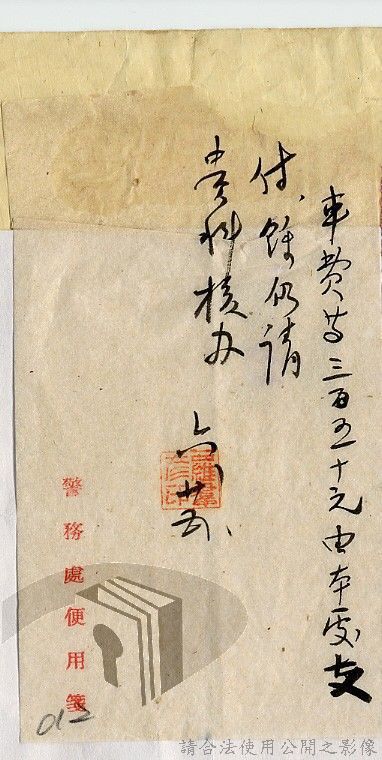 車費等三百五十元由本處支
付，餘仍請
貴科核办
六 廿五
警務處便用箋
012
請合法使用公開之影像